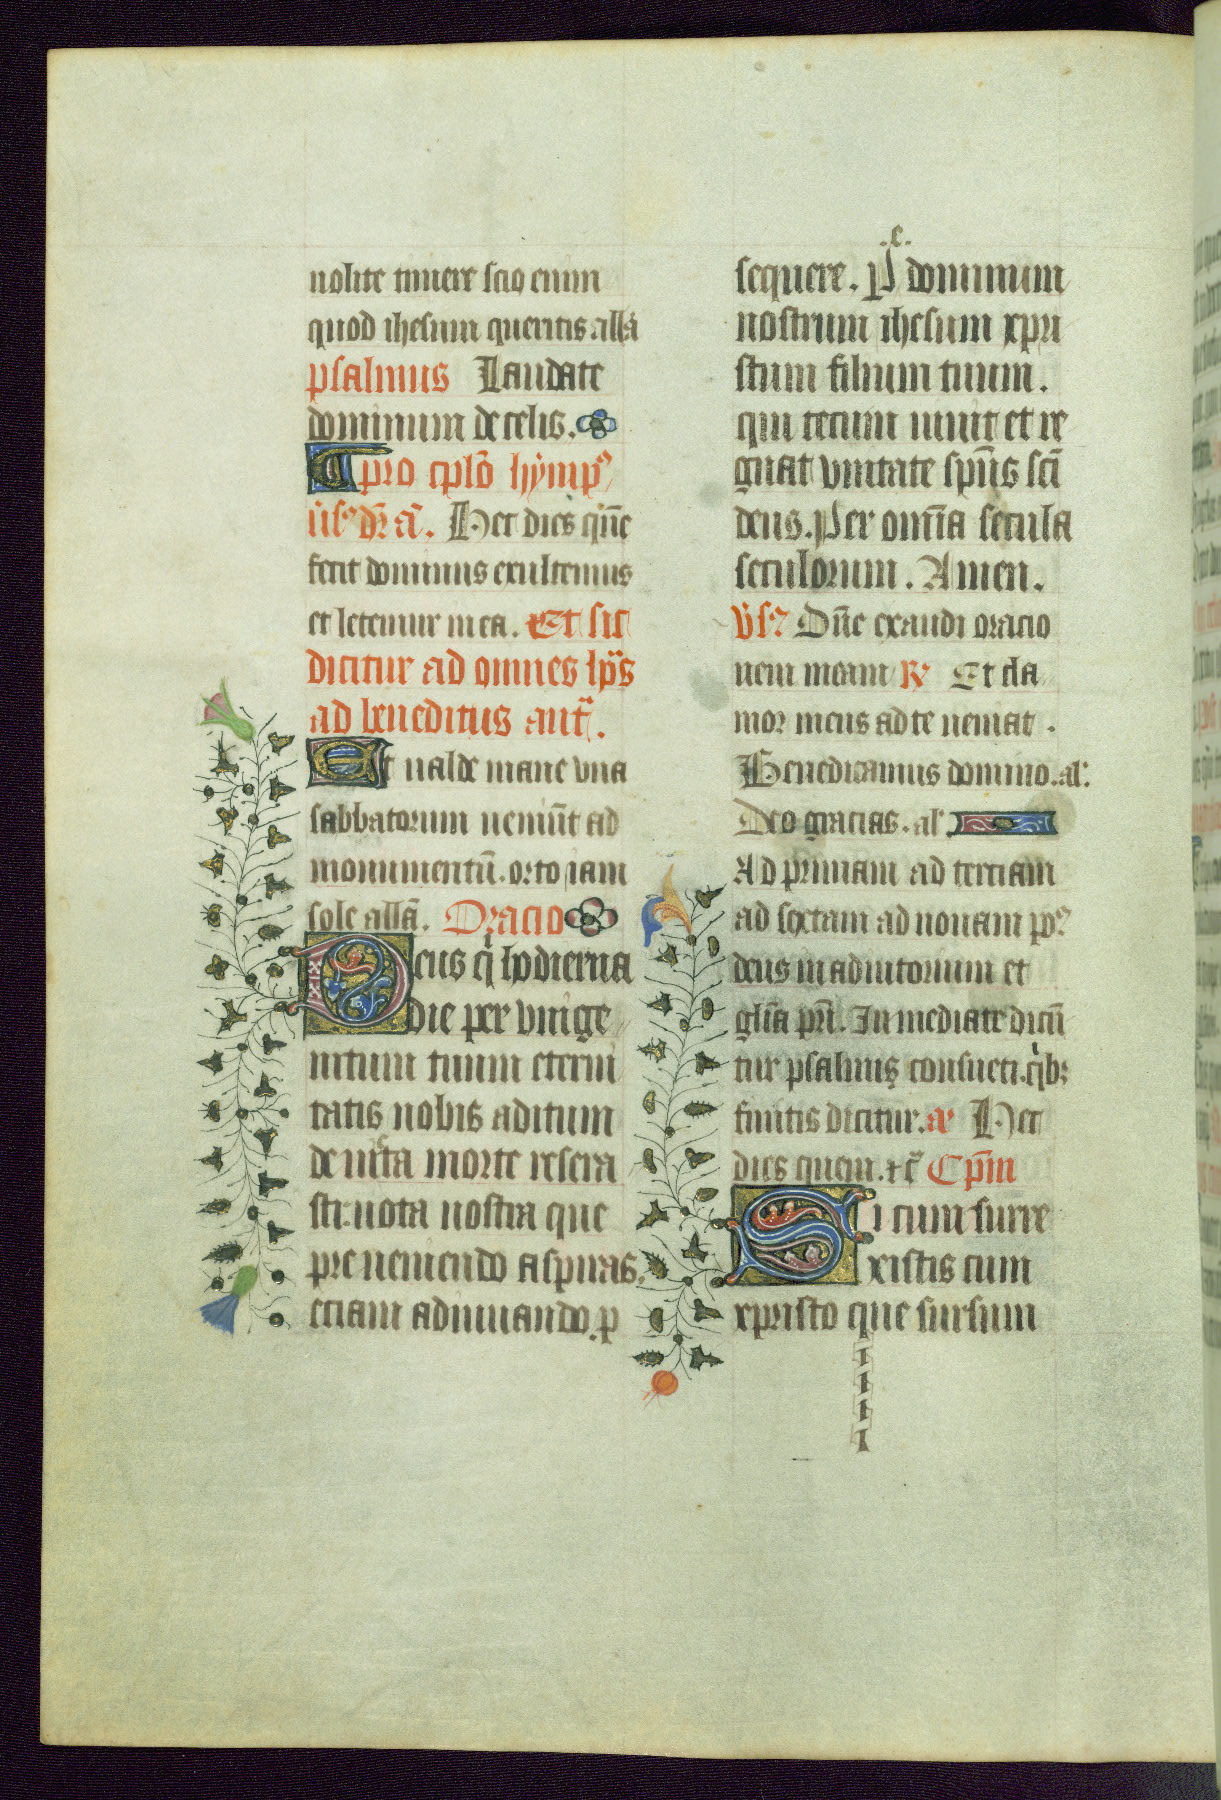 nolite timere scio enim
quod ihesum queritis allã
psalmus Laudate
dominum de celis.
pro cplõ hỳmp᷒
Hec dies qũe
fecit dominus exultemus
et letemur in ea. Et sic
dicitur ad omnes hp̃s
ad benedictus ant̃.
Et ualde mane vna
sabbatorum veniũt ad
monumentũ. orto iam
sole allã. Oracio
Deus q̇ hodierna
die per vnige
nitum tuum eterni
tatis nobis aditum
deuicta morte resera
sti: uota nostra que
preueniendo aspiras
etiam adiuuando. p
.e.
sequere. P dominum
nostrum ihesum xpri
stum filium tuum.
qui tecum uiuit et re
gnat vnitate spũs scĩ
deus. Per omĩa secula
seculorum. Amen.
v̇s᷒ Dñe exaudi oracio
nem meam R Et cla
mor meus ad te ueniat.
Benedicamus domino. al'.
Deo gracias. al'.
Ad primam ad terciam
ad sextam ad nonam p9
deus in adiutorium et
glĩa pr̃i. In mediate dicũ
tur psalmis consueti. q̇b;
finitis dicitur. a Hec
dies quem. &c̃ Cp̃m
Si cum surre
xistis cum
xpristo que sursum